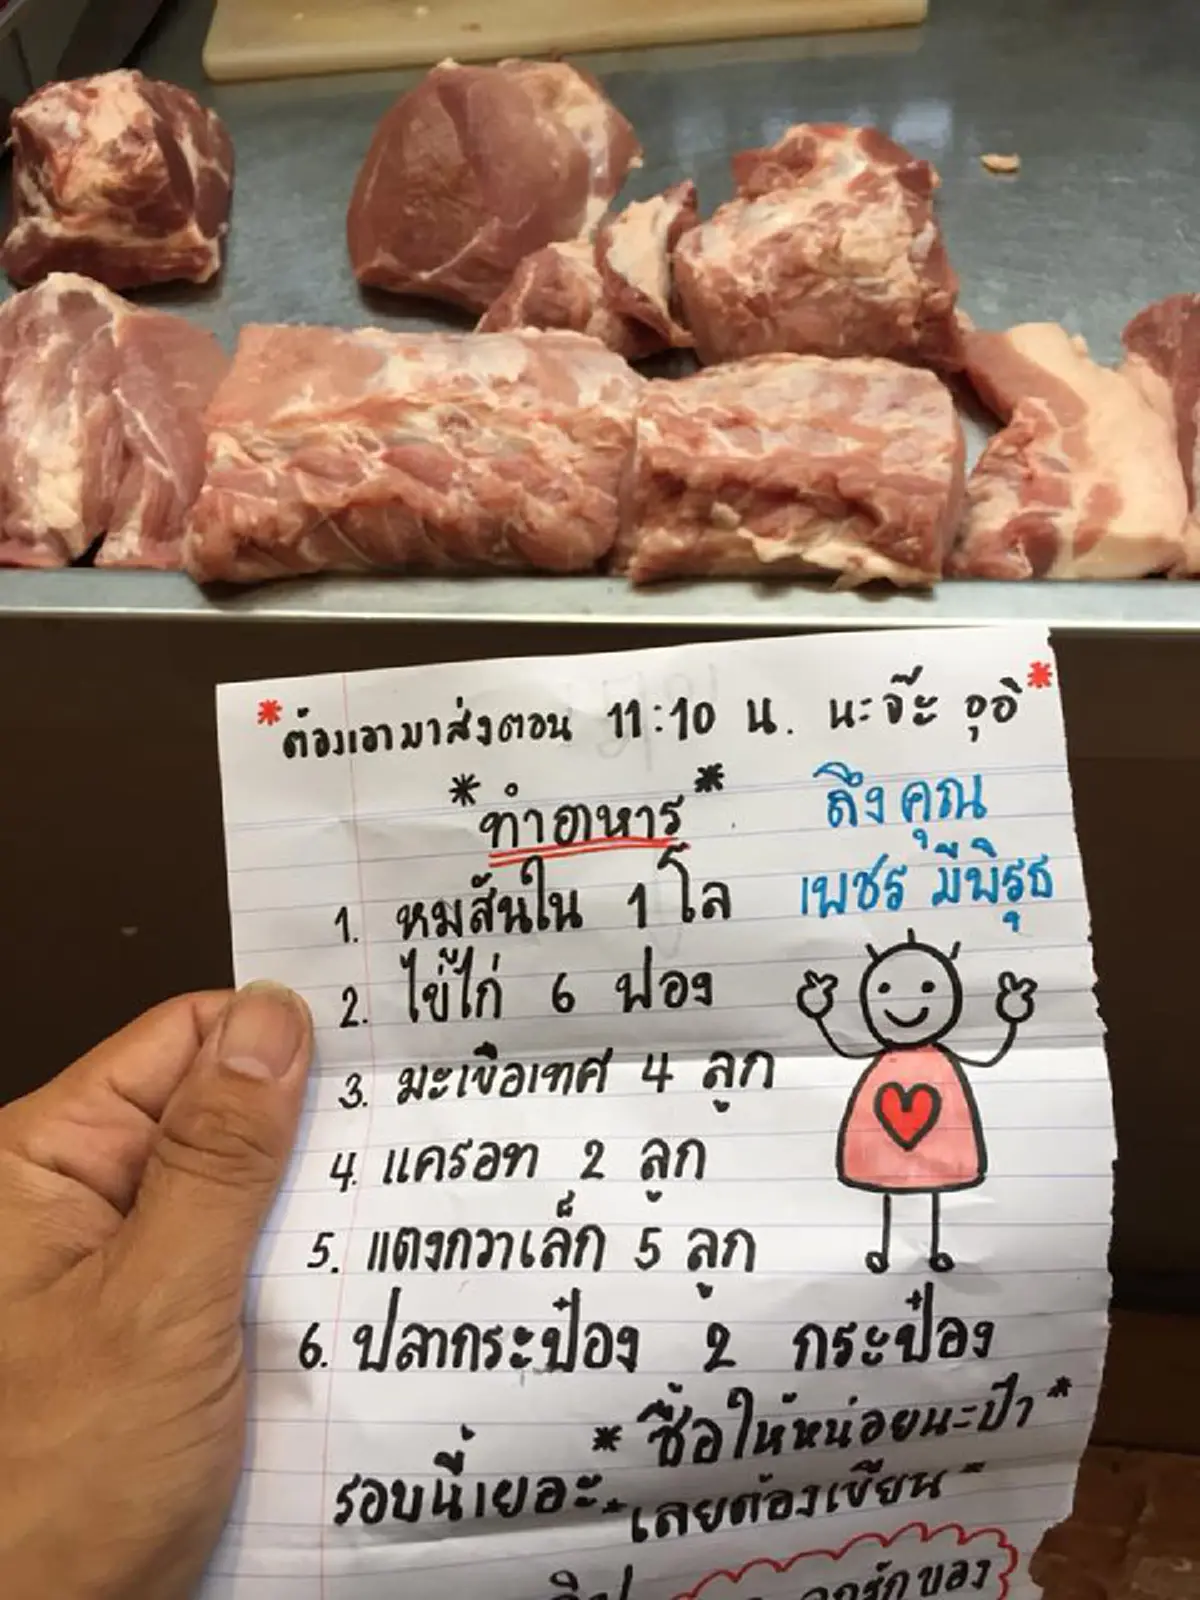 *ต้องเอามาส่งตอน 11:10 น. นะจ๊ะ อุอิ*
*ทำอาหาร*
ถึงคุณ
เพชร มีพิรุธ
1. หมูสันใน 1 โล
2. ไข่ไก่ 6 ฟอง
3. มะเขือเทศ 4 ลูก
4. แครอท 2 ลูก
5. แตงกวาเล็ก 5 ลูก
6. ปลากระป๋อง 2 กระป๋อง
* ซื้อให้หน่อยนะป๋า *
รอบนี้เยอะ
เลยต้องเขียน
ลูกรักของ